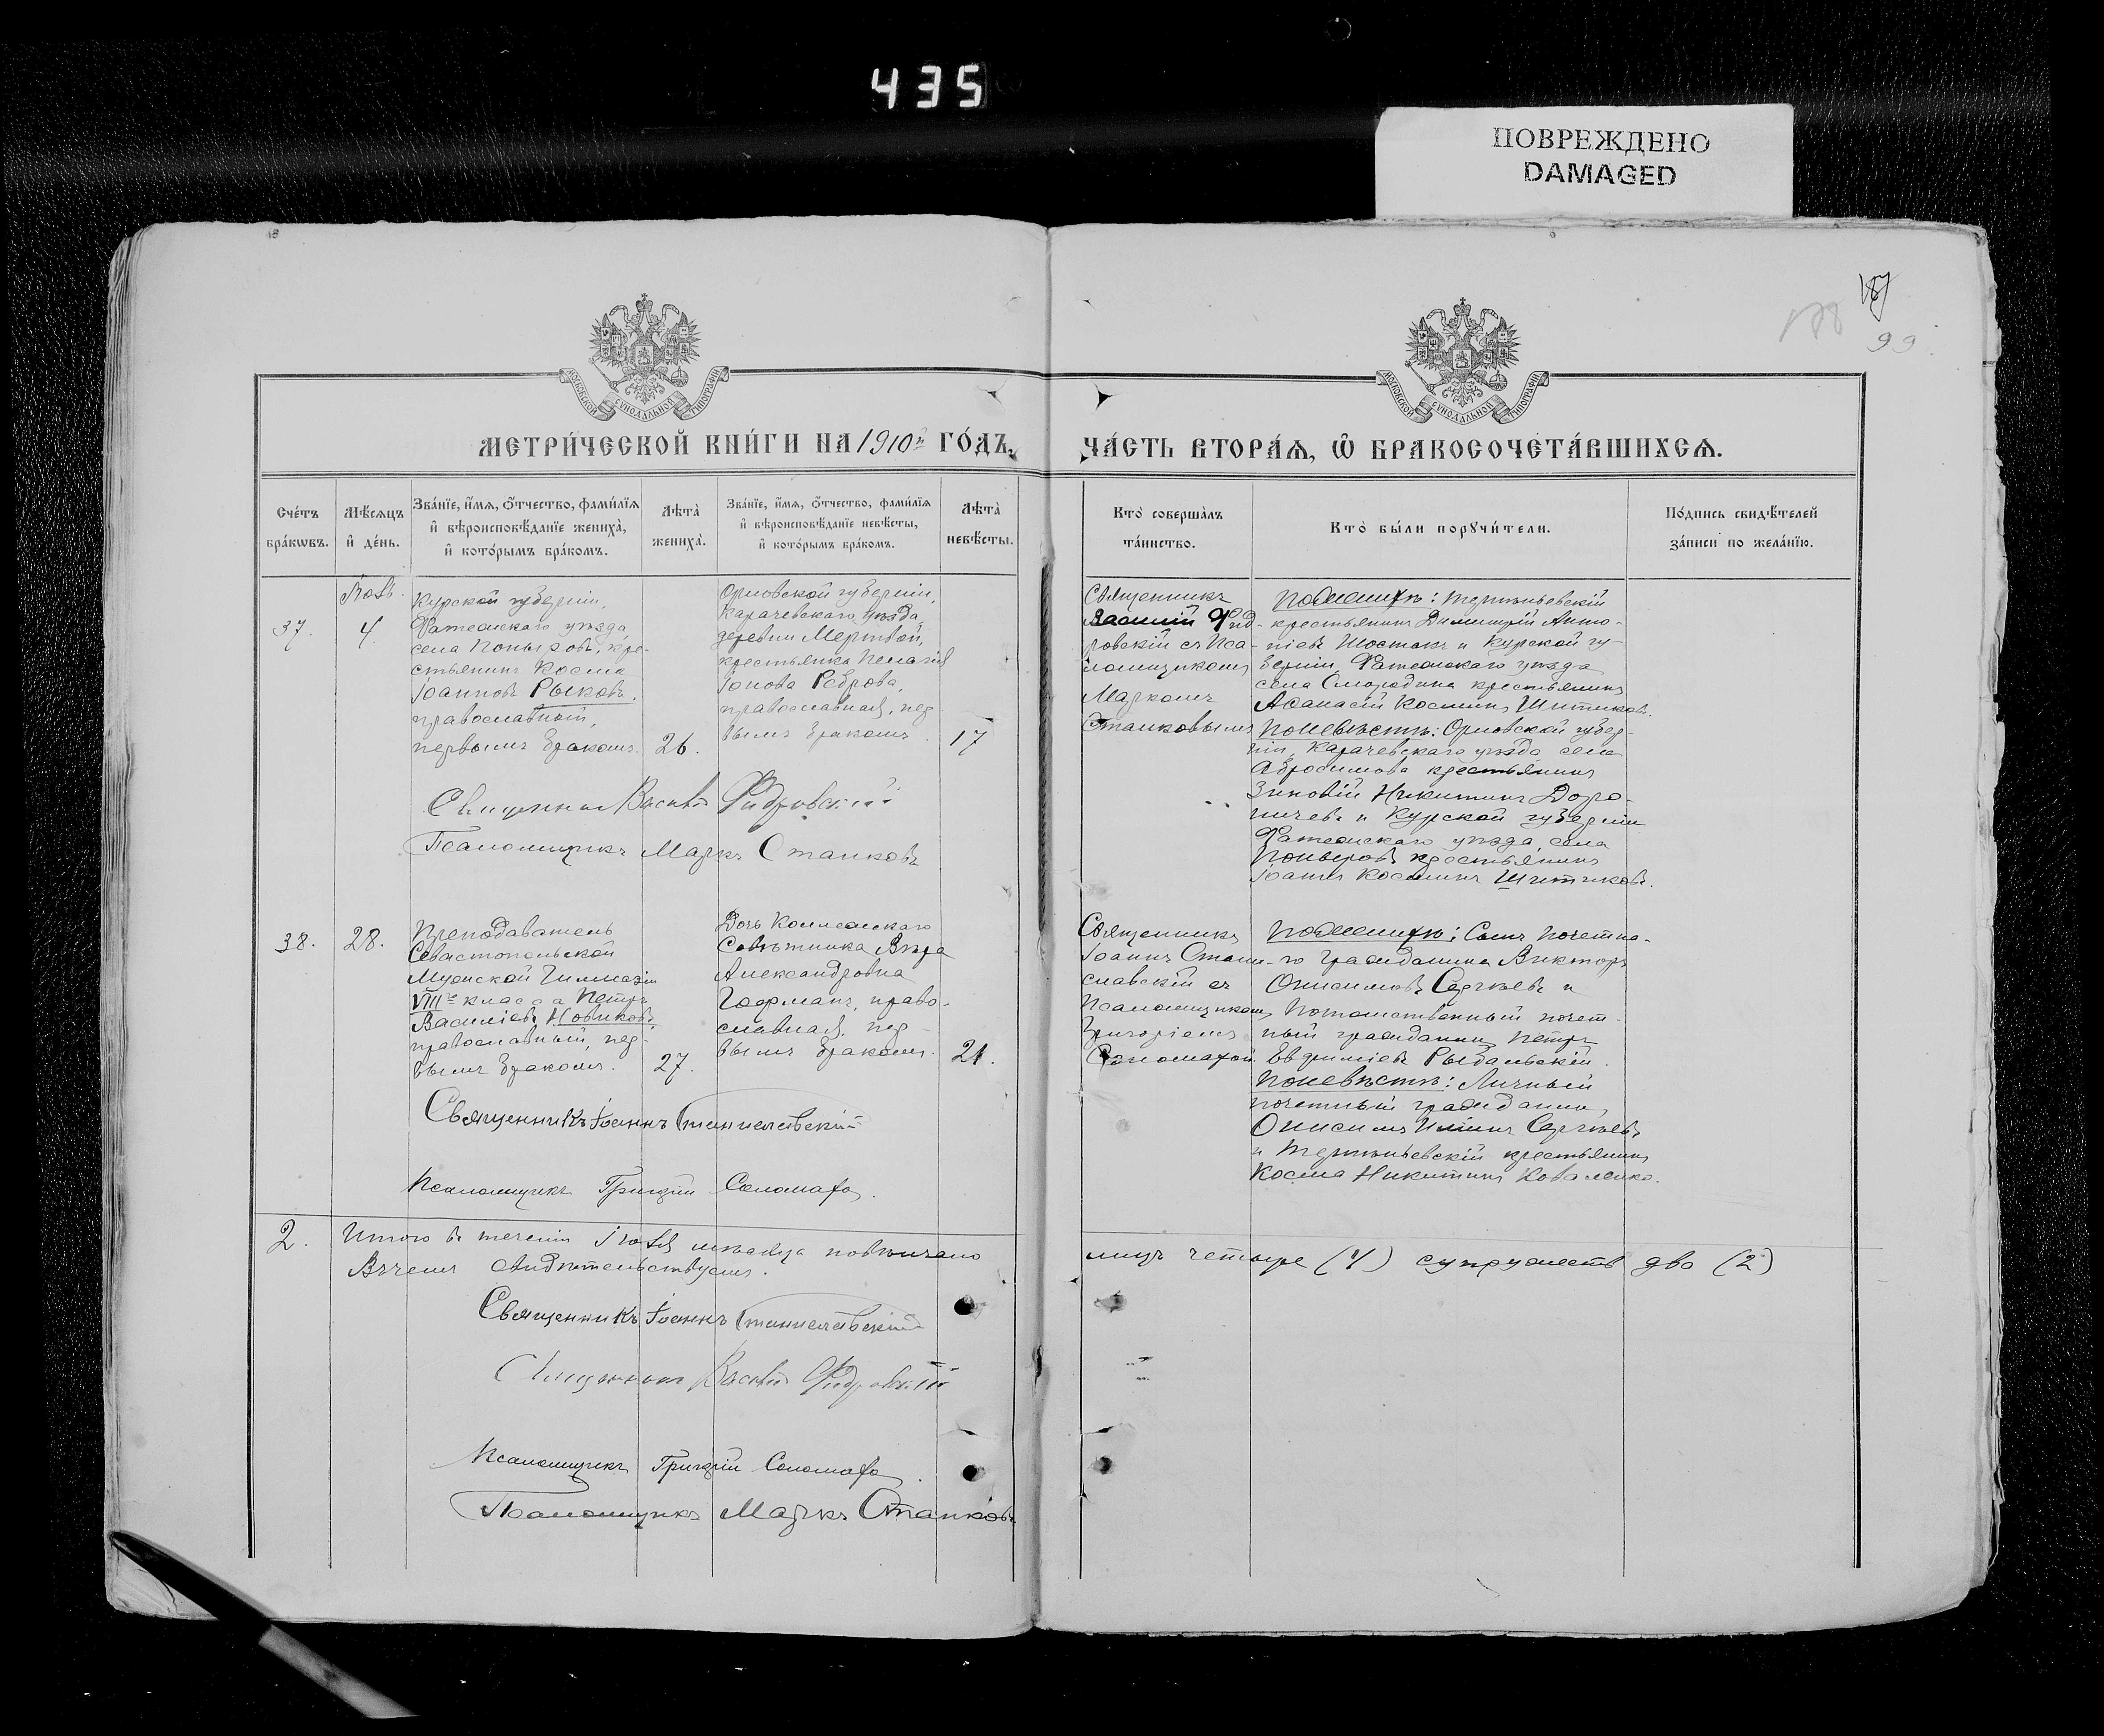 435
ПОВРЕЖДЕНО
DAMAGED
187
178
99
МОСКОВСКОЙ СѴНОДАЛЬНОЙ ТИПОГРАФІИ
МОСКОВСКОЙ СѴНОДАЛЬНОЙ ТИПОГРАФІИ
МЕТРИ́ЧЕСКОЙ КНИ́ГИ НА 1910й ГО́ДЪ,
ЧА́СТЬ ВТОРА́Ѧ, Ѡ҆ БРАКОСОЧЕТА́ВШИХСѦ.
Сче́тъ
бра́кѡвъ.
Мѣ́сѧцъ
и҆ де́нь.
Зва́нїе, и҆́мѧ, ѻ҆́тчество, фами́лїѧ
и҆ вѣроисповѣ́данїе жениха̀,
и҆ кото́рымъ бра́комъ.
Лѣта̀
жениха̀.
Зва́нїе, и҆́мѧ, ѻ҆́тчество, фами́лїѧ
и҆ вѣроисповѣ́данїе невѣ́сты,
и҆ кото́рымъ бра́комъ.
Лѣта̀
невѣ́сты.
Кто̀ соверша́лъ
та́инство.
Кто̀ бы́ли порꙋчи́тели.
По́дпись свидѣ́телей
за́писи по жела́нїю.
37.
4.
Курской губерніи,
Фатежскаго уѣзда
села Поныровъ, кре-
стьянинъ Косма
Іоанновъ Рыковъ,
православный,
первымъ бракомъ.
26.
Орловской губерніи,
Карачевскаго уѣзда,
деревни Мертвой,
крестьянка Пелагія
Іонова Реброва,
православная, пер
вымъ бракомъ.
17
Священникъ
Василій Фид-
ровскій съ Пса-
ломщикомъ
Маркомъ
Станковымъ
По женихѣ: Терпѣньевскій
крестьянинъ Димитрій Анто-
ніевъ Шостакъ и Курской гу-
берніи, Фатежскаго уѣзда
села Смородина крестьянинъ
Аѳанасій Косминъ Шитиковъ.
По невѣстѣ: Орловской губер-
ніи, Карачевскаго уѣзда села
Абросимова крестьянинъ
Зиновій Никитинъ Доро-
ничевъ и Курской губерніи
Фатежскаго уѣзда, села
Поныровъ крестьянинъ
Іоаннъ Косминъ Шитиковъ.
Священникъ Василій Фидровскій
Псаломщикъ Маркъ Станковъ
38.
28.
Преподаватель
Севастопольской
Мужской Гимназіи
VIIIго класса Петръ
Василіевъ Новиковъ,
православный, пер-
вымъ бракомъ.
27.
Дочь Коллежскаго
Совѣтника Вѣра
Александровна
Гофманъ, право-
славная, пер-
вымъ бракомъ.
21.
Священникъ
Іоаннъ Стани-
славскій съ
Псаломщикомъ
Григоріемъ
Соломахой
По женихѣ: Сынъ почетна-
го гражданина Викторъ
Онисимовъ Сергѣевъ и
Потомственный почет-
ный гражданинъ Петръ
Евфиміевъ Рыбальскій.
По невѣстѣ: Личный
почетный гражданинъ
Онисимъ Ильинъ Сергѣевъ
и Терпѣньевскій крестьянинъ
Косма Никитинъ Коваленко.
Священникъ Іоаннъ Станиславскій
Псаломщикъ Григорій Соломаха.
2.
Итого въ теченіи Іюля мѣсяца повѣнчано
лицъ четыре (4) супружествъ два (2)
Въ чемъ свидѣтельствуемъ.
Священникъ Іоаннъ Станиславскій
Священникъ Василій Фидровскій
Псаломщикъ Григорій Соломаха.
Псаломщикъ Маркъ Станковъ